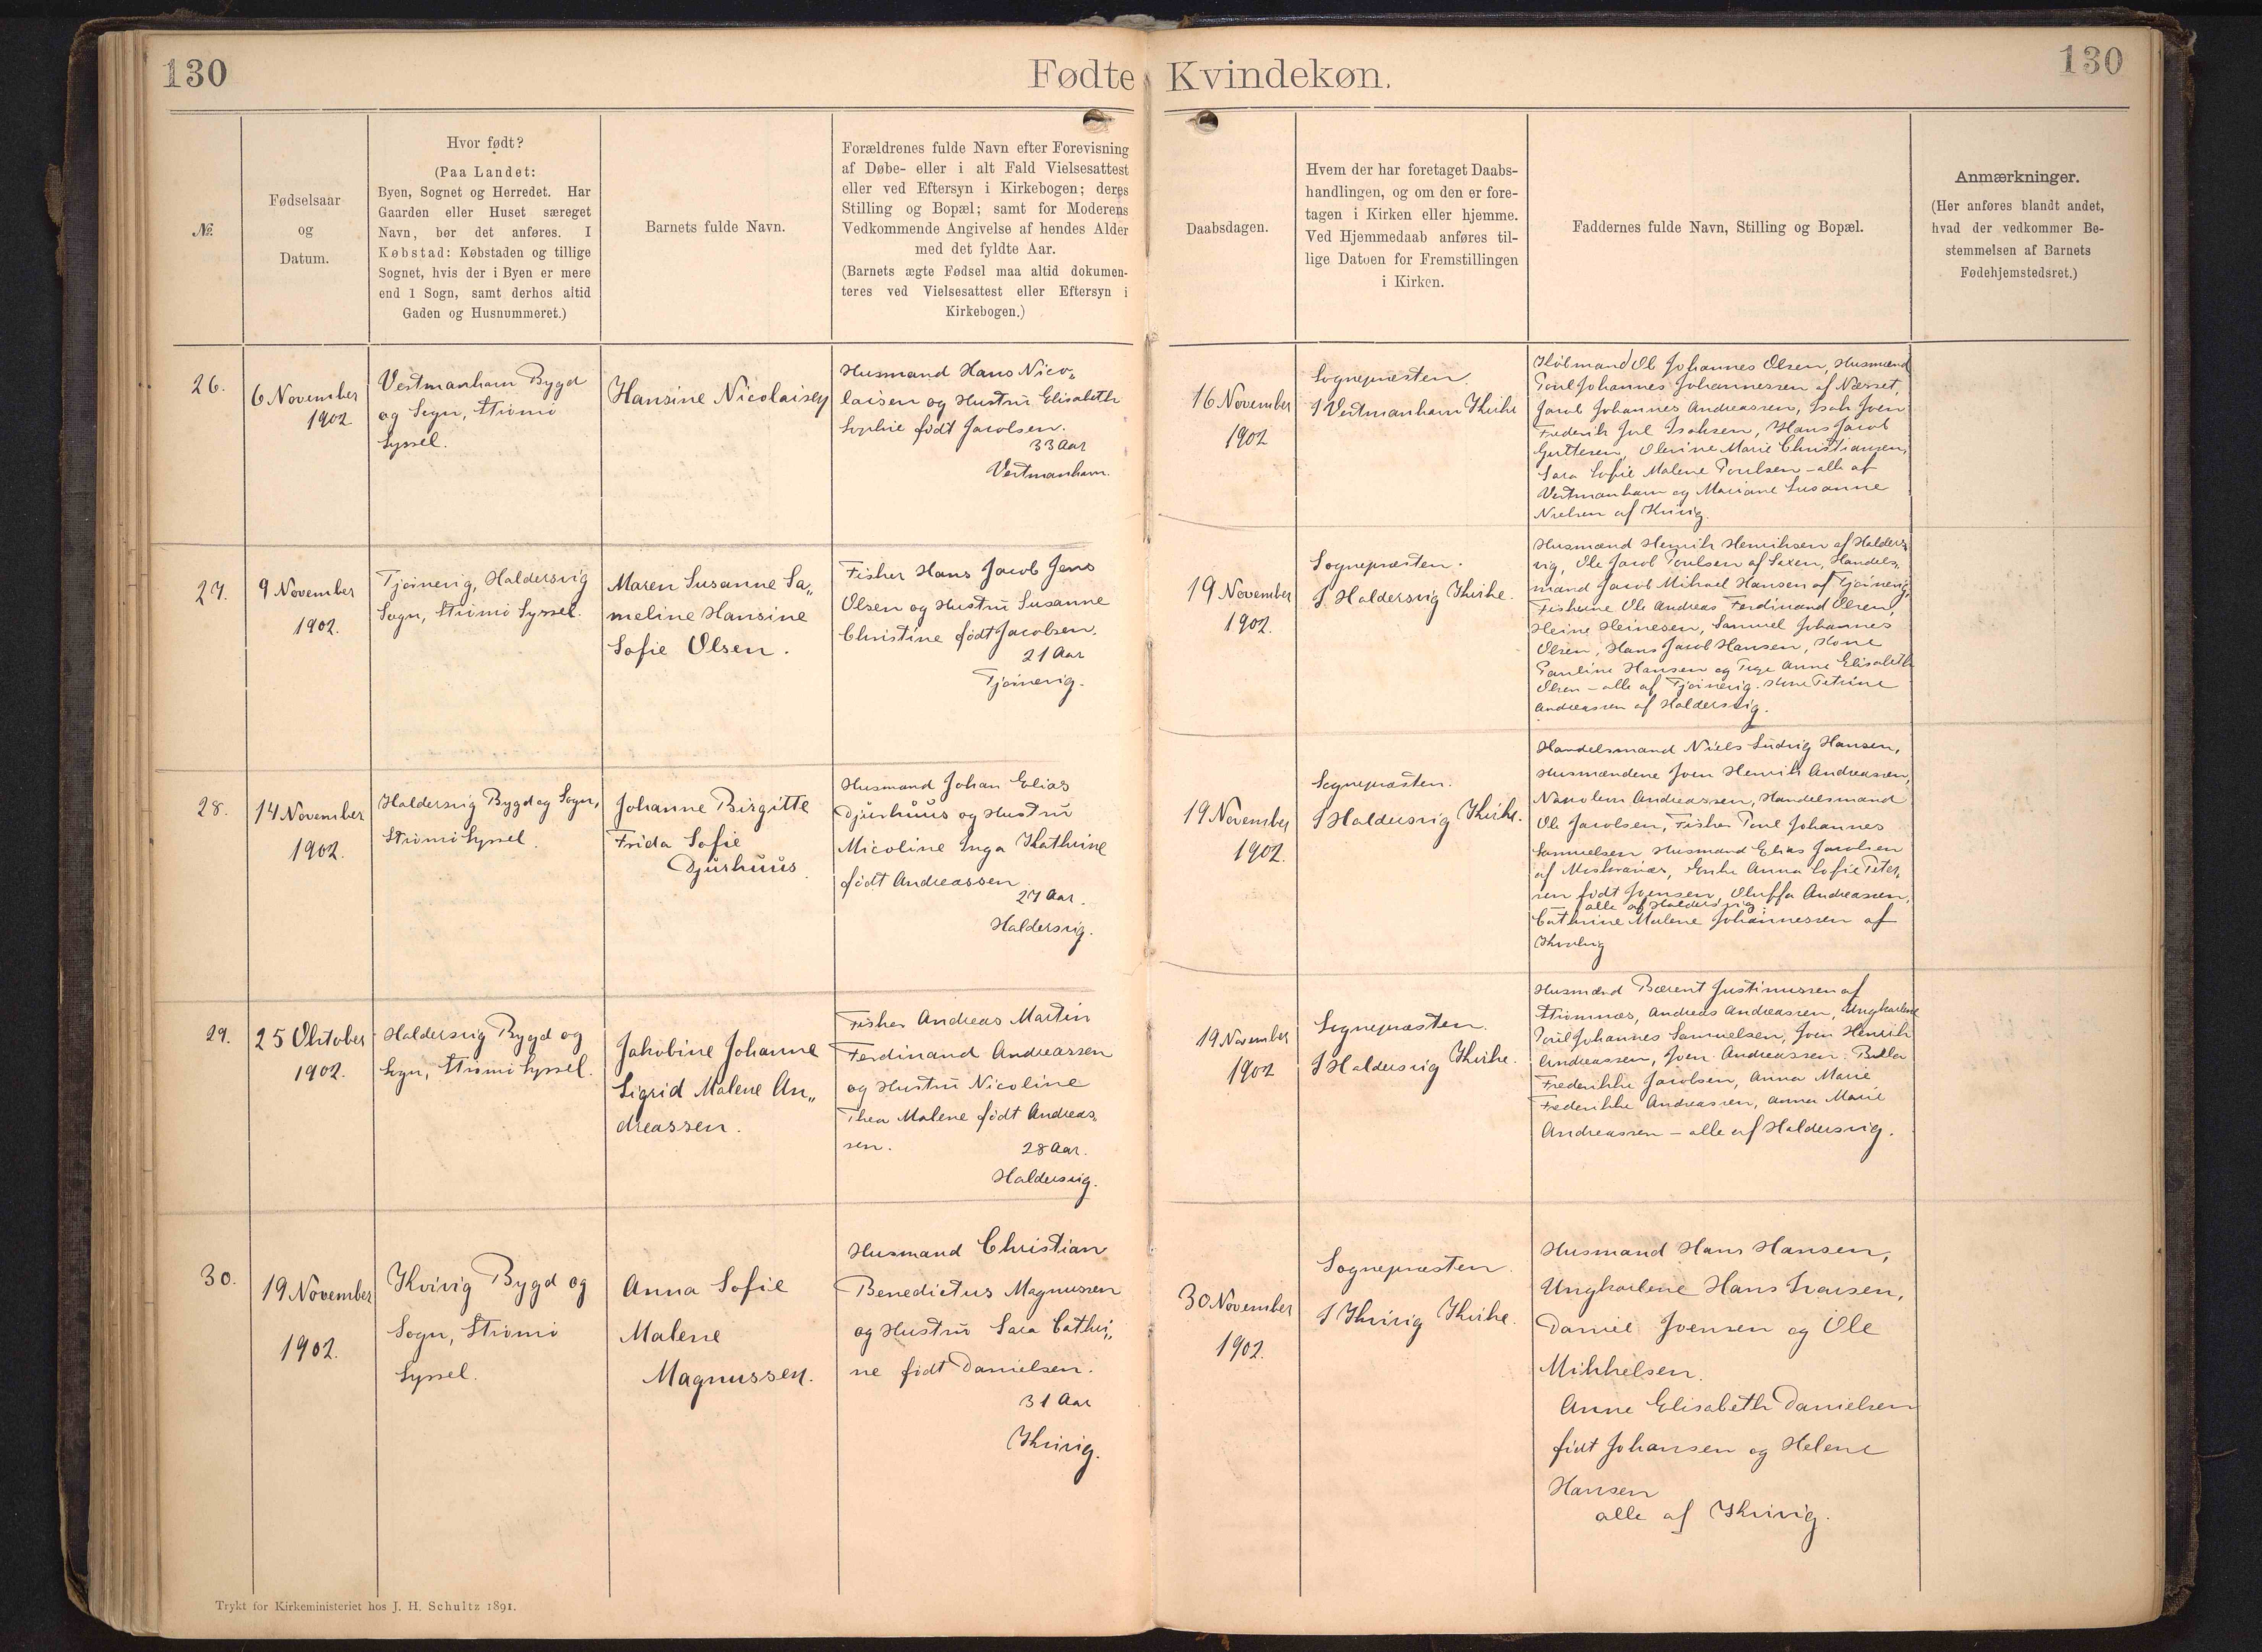 130
Fødte Kvindekøn.
130
№.
Fødselsaar
og
Datum.
Hvor født?
(Paa Landet:
Byen, Sognet og Herredet. Har
Gaarden eller Huset særeget
Navn, bør det anføres. I
Købstad: Købstaden og tillige
Sognet, hvis der i Byen er mere
end 1 Sogn, samt derhos altid
Gaden og Husnummeret.)
Barnets fulde Navn.
Forældrenes fulde Navn efter Forevisning
af Døbe- eller i alt Fald Vielsesattest
eller ved Eftersyn i Kirkebogen; deres
Stilling og Bopæl; samt for Moderens
Vedkommende Angivelse af hendes Alder
med det fyldte Aar.
(Barnets ægte Fødsel maa altid dokumen-
teres ved Vielsesattest eller Eftersyn i
Kirkebogen.)
Daabsdagen.
Hvem der har foretaget Daabs-
handlingen, og om den er fore-
tagen i Kirken eller hjemme.
Ved Hjemmedaab anføres til-
lige Datoen for Fremstillingen
i Kirken.
Faddernes fulde Navn, Stilling og Bopæl.
Anmærkninger.
(Her anføres blandt andet,
hvad der vedkommer Be-
stemmelsen af Barnets
Fødehjemstedsret.)
26.
6 November
1902
Vestmanhavn Bygd
og Sogn, Strømø
Syssel.
Hansine Nicolaisen
Husmand Hans Nico„
laisen og Hustrū Elisabeth
Sophie født Jacobsen.
33 Aar
Vestmanhavn.
16 November
1902
Sognepræsten.
I Vestmanhavn Kirke
Købmand Ole Johannes Olsen, Husmænd
Poul Johannes Johannessen af Næsset,
Jacob Johannes Andreassen, Isak Joen
Frederik Jul Isaksen, Hans Jacob
Guttesen, Olevine Marie Christiansen,
Sara Sofie Malene Poulsen – alle af
Vestmanhavn og Mariane Susanne
Nielsen af Kvivig.
27.
9 November
1902.
Tjørnevig, Haldersvig
Sogn, Strømø Syssel.
Maren Susanne Sa„
meline Hansine
Sofie Olsen.
Fisker Hans Jacob Jens
Olsen og Hustrū Susanne
Christine født Jacobsen.
21 Aar
Tjørnevig.
19 November
1902.
Sognepræsten.
I Haldersvig Kirke.
Husmænd Henrik Henriksen af Halders„
vig, Ole Jacob Poulsen af Saxen, Handels„
mand Jacob Mikael Hansen af Tjørnevig,
Fiskerne Ole Andreas Ferdinand Olsen,
Heine Heinesen, Samuel Johannes
Olsen, Hans Jacob Hansen, Kone
Pauline Hansen og Pige Anne Elisabeth
Olsen – alle af Tjørnevig. Kone Petrine
Andreassen af Haldersvig.
28.
14 November
1902.
Haldersvig Bygd og Sogn,
Strømø Syssel.
Johanne Birgitte
Frida Sofie
Djūrhūūs.
Husmand Johan Elias
Djūrhūūs og Hustrū
Nicoline Inga Kathrine
født Andreassen
27 Aar.
Haldersvig.
19 November
1902.
Sognepræsten.
I Haldersvig Kirke.
Handelsmand Niels Ludvig Hansen,
Husmændene Joen Henrik Andreassen,
Napoleon Andreassen, Handelsmand
Ole Jacobsen, Fisker Poul Johannes
Samuelsen, Husmand Elias Jacobsen
af Enke Anna Sofie Peter„
sen født Joensen, Oluffa Andreassen,
alle af Haldersvig.
Cathrine Malene Johannessen af
29.
25 Oktober
1902.
Haldersvig Bygd og
Sogn, Strømø Syssel.
Jakobine Johanne
Sigrid Malene An„
dreassen.
Fisker Andreas Martin
Ferdinand Andreassen
og Hustrū Nicoline
Thea Malene født Andreas„
sen.
28 Aar.
Haldersvig.
19 November
1902
Sognepræsten.
I Haldersvig Kirke.
Husmænd Bærent Justinussen af
Strømnæs, Andreas Andreassen, Ungkarlene
Poul Johannes Samuelsen, Joen Henrik
Andreassen, Joen Andreassen. Billa
Frederikke Jacobsen, Anna Marie
Frederikke Andreassen, Anna Marie
Andreassen – alle af Haldersvig.
30.
19 November
1902.
Kvivig Bygd og
Sogn, Strømø
Syssel.
Anna Sofie
Malene
Magnussen.
Husmand Christian
Benedictus Magnussen
og Hustrū Sara Cathri„
ne født Danielsen.
31 Aar
Kvivig.
30 November
1902.
Sognepræsten.
I Kvivig Kirke.
Husmand Hans Hansen,
Ungkarlene Hans Ivarsen,
Daniel Joensen og Ole
Mikkelsen.
Anne Elisabeth Danielsen
født Johansen og Helene
Hansen
alle af Kvivig.
Trykt for Kirkeministeriet hos J. H. Schultz 1891.